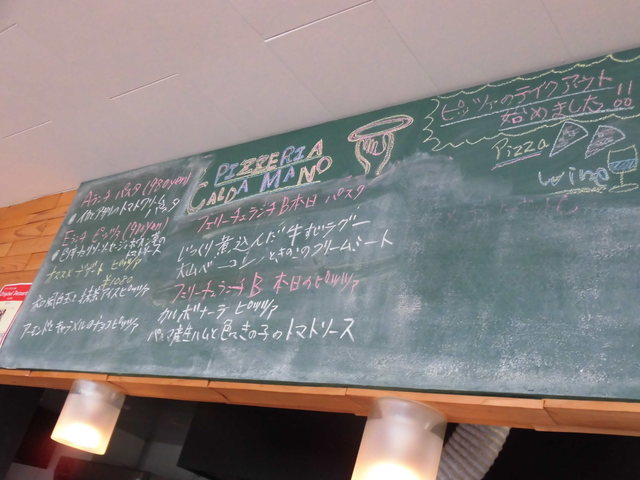 PIZZERIA
CALDA MANO
Aランチ パスタ (980yen)
トマトクリームパスタ
Bランチ ピッツァ (980yen)
オススメ デザート ピッツァ
¥1080
アーモンドとキャラメルのチョコピッツァ
フェリーチェランチB 本日 パスタ
じっくり煮込んだ牛すじラグー
大山ベーコンときのこのクリームソート
フェリーチェランチB 本日のピッツァ
カルボナーラ ピッツァ
パルマ産生ハムと きの子のトマトソース
ピッツァのテイクアウト
始めました!!
Pizza
wino